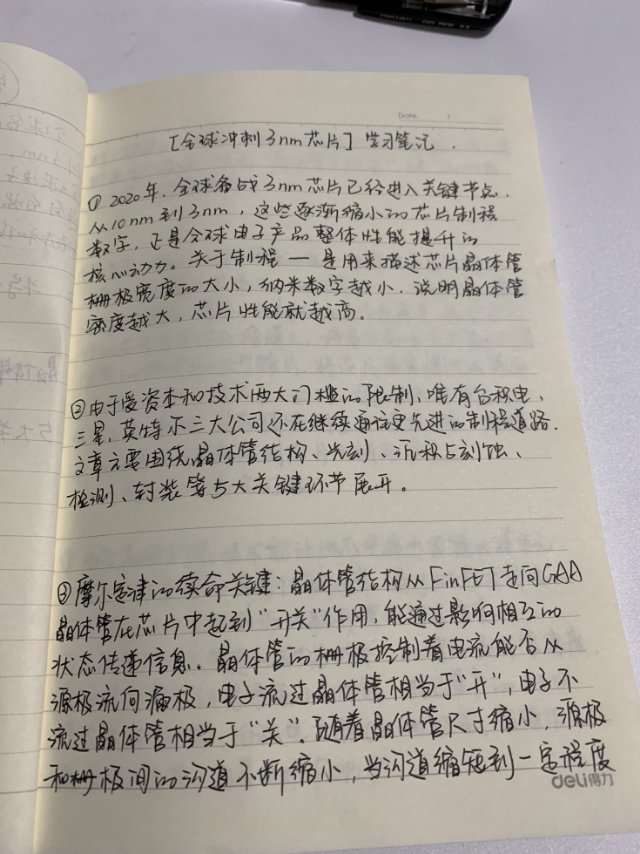 Date /
[全球冲刺3nm芯片] 学习笔记.
① 2020年, 全球备战3nm芯片已经进入关键节点.
从10nm到3nm, 这些逐渐缩小的芯片制程
数字, 正是全球电子产品整体性能提升的
核心动力。关于制程 — 是用来描述芯片晶体管
栅极宽度的大小, 纳米数字越小, 说明晶体管
密度越大, 芯片性能就越高。
②由于受资本和技术两大门槛的限制, 唯有台积电、
三星, 英特尔三大公司还在继续通往更先进的制程道路.
文章主要围绕晶体管结构、光刻、沉积与刻蚀、
检测、封装等5大关键环节展开。
③摩尔定律的续命关键: 晶体管结构从FinFET走向GAA
晶体管在芯片中起到“开关”作用, 能通过影响相互的
状态传递信息. 晶体管的栅极控制着电流能否从
源极流向漏极, 电子流过晶体管相当于“开”, 电子不
流过晶体管相当于“关”. 随着晶体管尺寸缩小, 源极
和栅极间的沟道不断缩小, 当沟道缩短到一定程度
deli得力